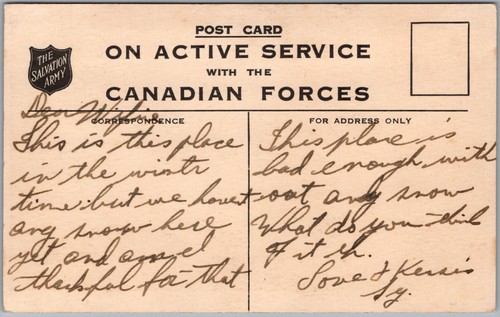 POST CARD
ON ACTIVE SERVICE
WITH THE
CANADIAN FORCES
THE
SALVATION
ARMY
CORRESPONDENCE
FOR ADDRESS ONLY
Dear Wifie
This is this place
in the wintr
time. but we havent
any snow here
yet and am
thankful for that
This place is
bad enough with
out any snow
What do you think
of it h.
Love & Kersis
Sy.